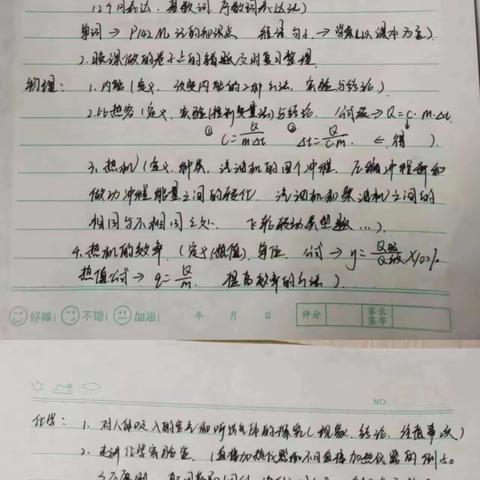 12个月表达、基数词、序数词表达法)
单词→P142 M1的知识点、短语句子→当家(以课本为主).
2.晚课做的卷子上的错题及时复习整理.
物理: 1.内能(定义、改变内能的2种方法、实验与结论).
2.比热容(定义、实验(控制变量法)与结论、公式→Q=c·m·Δt.
① C=Q/mΔt ② Δt=Q/C·m. ←得 ).
3.热机)(定义、种类、汽油机的四个冲程、压缩冲程和
做功冲程能量之间的转化、汽油机和柴油机之间的
相同与不相同之处、飞轮转动类型题…).
4.热机的效率.(定义(热值)、单位、公式→η=Q吸/Q放×100%
热值公式→q=Q/m. 提高效率的方法).
好棒! 不错! 加油! 年 月 日 评分 家长签字
NO.
化学: 1.对人体吸入的空气和呼出气体的探究(现象、结论、注意事项)
2.走进化学实验室.(直接加热仪器和不可直接加热仪器的